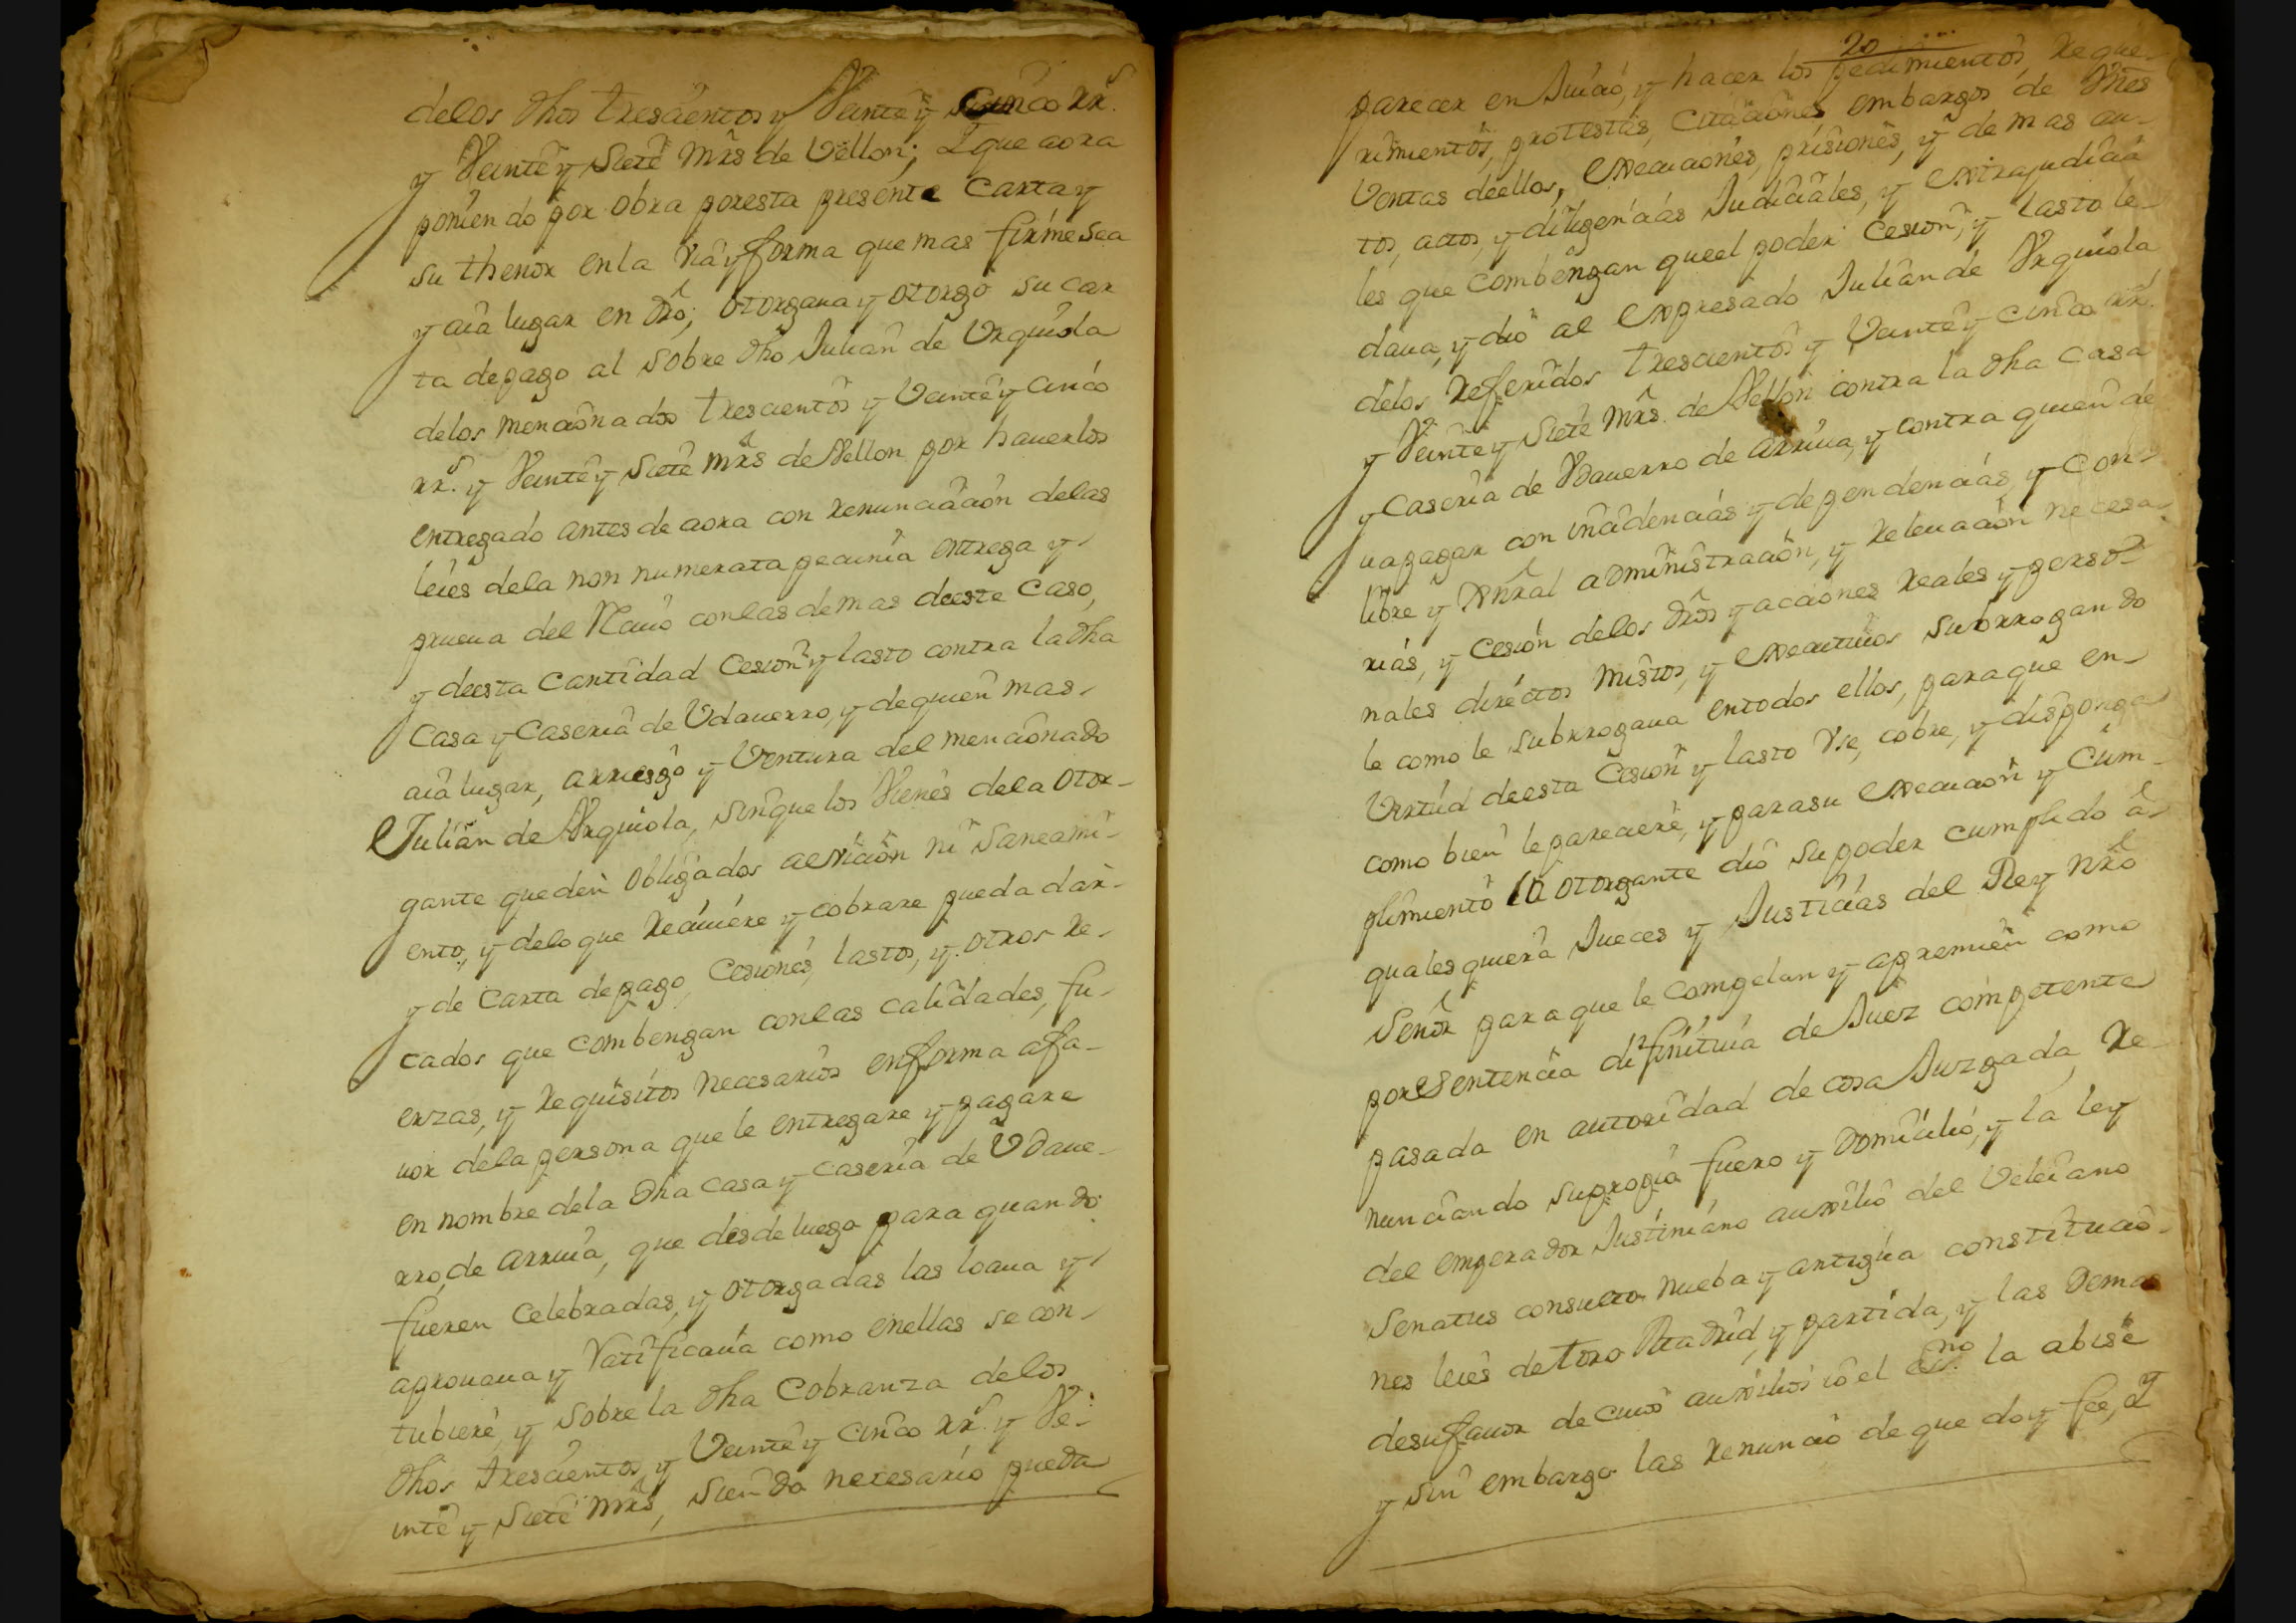 delos dhos trescientos y Veinte y cinco rrs.
y Veinte y siete mrs de Vellon; I que aora
poniendo por obra poresta presente Carta y
su thenor enla via y forma que mas firme sea
y aia lugar en dro; otorgaua y otorgó su car
ta depago al sobre dho Julian de Vrquiola
delos mencionados trescientos y Veinte y cinco
rrs. y Veinte y siete mrs de Vellon por hauerlos
entregado antes de aora con renunciación delas
leies dela non numerata pecunia entrega y
prueua del Reciuo conlas demas deeste caso,
y deesta cantidad Cesion y lasto contra la dha
Casa y Caseria de Vdauerro, y dequien mas
aia lugar, arriesgo y Ventura del mencionado
Julian de Vrquiola, sinque los Vienes dela otor-
gante queden obligados aevición ni saneami-
ento, y delo que reciuiere y cobrare pueda dar
y de Carta depago, Cesiones, lastos, y otros re-
cados que combengan conlas calidades, fu-
erzas, y requisitos necesarios enforma afa-
uor dela persona que le entregare y pagare
en nombre dela dha casa y caseria de Vdaue-
rro, de arriua, que desde luego para quando
fueren Celebradas, y otorgadas las loaua y
aprouaua y Ratificaua como enellas se con-
tubiere, y sobre la dha Cobranza delos
dhos trescientos y Veinte y cinco rrs. y Ve-
inte y siete mrs, siendo necesario pueda
20
parecer en Juicio, y hacer los pedimientos, reque-
rimientos, protestas, citaciones, embargos de Vnes
Ventas deellos, execuciones, prisiones, y demas au-
tos, actos, y diligencias Judiciales, y extrajudicia
les que combengan queel poder Cesion, y lasto le
daua, y dió al expresado Julian de Vrquiola
delos referidos trescientos y Veinte y cinco rrs.
y Veinte y siete mrs. de Vellon contra la dha casa
y Caseria de Vdauerro de arriua, y contra quien de
uapagar con incidencias y dependencias, y con
libre y Gnral administración, y releuación necesa
rias, y cesión delos dros y acciones reales y perso-
nales directos mistos, y executiuos subrrogando
le como le subrrogaua entodos ellos, paraque en
Virtud deesta Cesion y lasto Vse, cobre, y disponga
como bien le pareciere, y parasu execucion y cum-
plimiento la otorgante dió supoder cumplido á
qualesquiera Jueces y Justicias del Rey nro
señor paraque le compelan y apremien como
por sentencia difinitiua de Juez competente
pasada en autoridad de cosa Juzgada, re-
nunciando supropia fuero y domicilio, y la ley
del emperador Justiniano auxilio del Veleiano
senatus consulto nueba y antigua constitucio-
nes leies de toro Madrid, y partida, y las demas
desufauor de cuios auxilios io el esno. la abise
y sin embargo las renunció de que doy fee, I